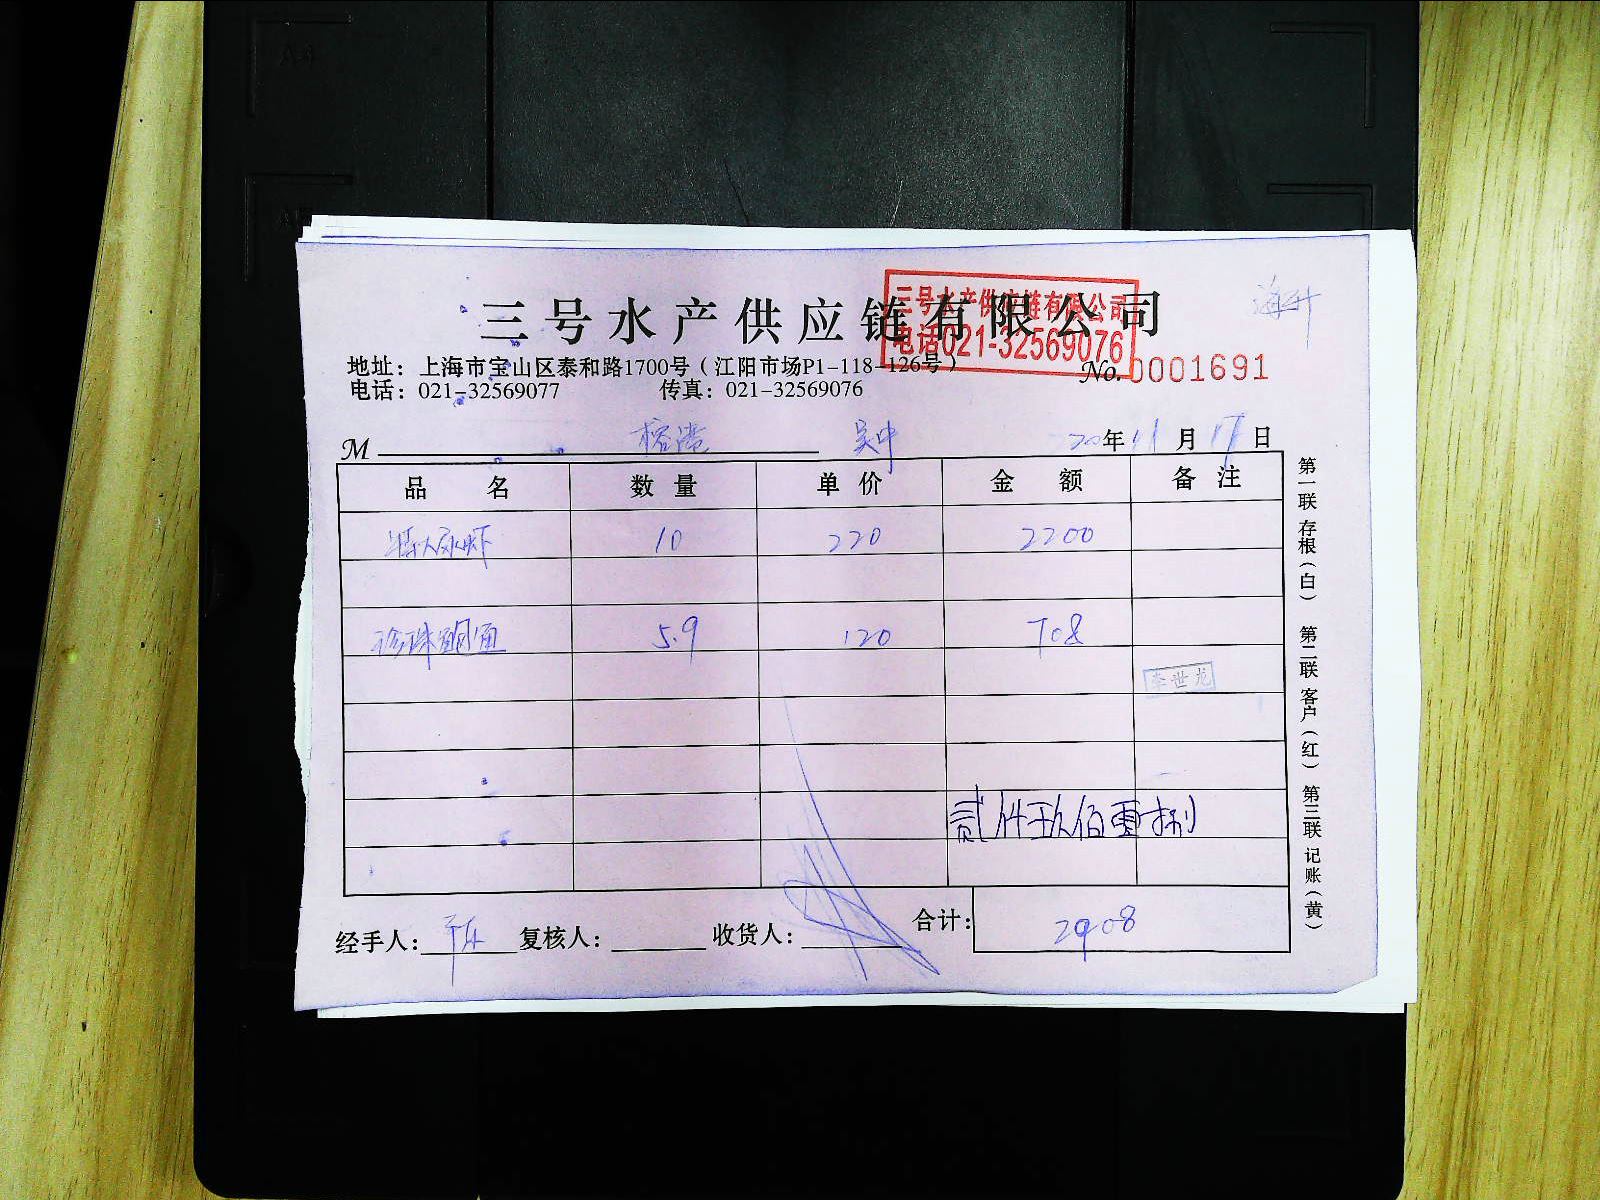 三号水产供应链有限公司
三号水产供应链有限公司
电话021-32569076
地址：上海市宝山区泰和路1700号（江阳市场P1-118-126号）
No. 0001691
电话：021-32569077 传真：021-32569076
M 吴中 20年11月17日
品名 数量 单价 金额 备注
特大 虾 10 220 2200
珍珠 5.9 120 708
李世龙
贰仟玖佰零捌
经手人： 复核人： 收货人： 合计：2908
第一联 存根（白） 第二联 客户（红） 第三联 记账（黄）